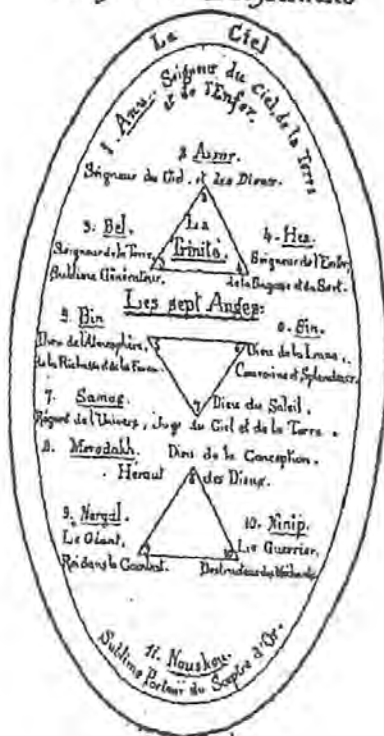 La Ciel
1. Anu. Seigneur du Ciel, de la Terre
et de l'Enfer.
2 Assur.
Seigneur du Ciel, et des Dieux.
3. Bel.
Seigneur de la Terre,
Sublime Générateur.
La
Trinité.
4. Hea.
Seigneur de l'Enfer,
de la Sagesse et du Sort.
Les sept Anges:
5. Bin
Dieu de l'Atmosphère,
de la Richesse et de la
6. Sin.
Dieu de la Lune,
Couronne et Splendeur.
7. Samas.
Dieu du Soleil,
Régent de l'Univers, Juge du Ciel et de la Terre.
8. Merodakh. Dieu de la Conception.
Héraut des Dieux.
9. Nergal.
Le Géant,
Roi dans le Combat.
10. Ninip.
Le Guerrier,
Destructeur des Méchants.
11. Nouskou.
Sublime Porteur du Sceptre d'Or.